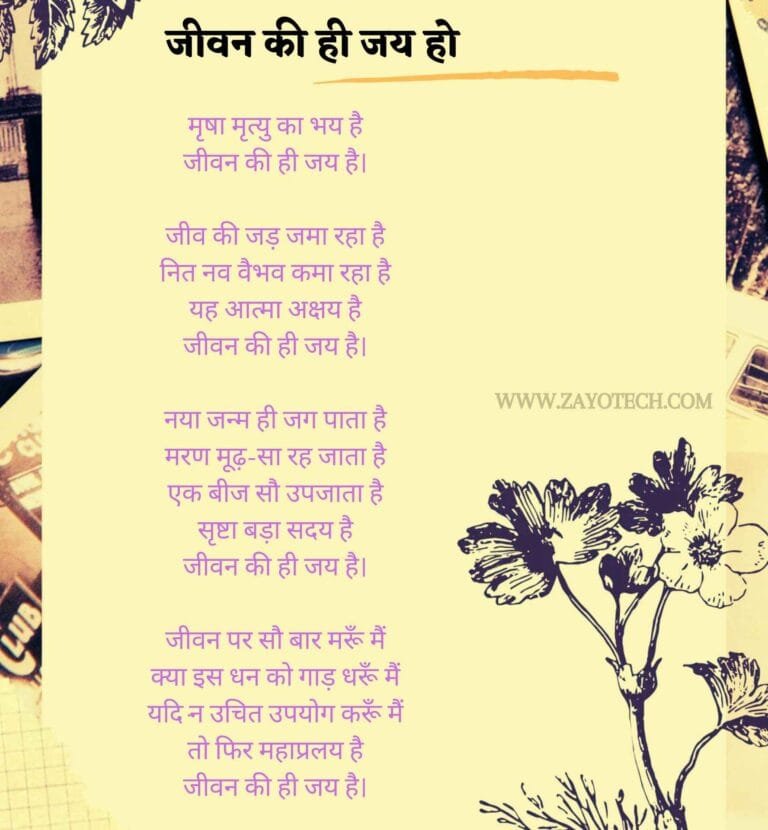 जीवन की ही जय हो
मृषा मृत्यु का भय है
जीवन की ही जय है।
जीव की जड़ जमा रहा है
नित नव वैभव कमा रहा है
यह आत्मा अक्षय है
जीवन की ही जय है।
नया जन्म ही जग पाता है
मरण मूढ़-सा रह जाता है
एक बीज सौ उपजाता है
सृष्टा बड़ा सदय है
जीवन की ही जय है।
जीवन पर सौ बार मरूँ मैं
क्या इस धन को गाड़ धरूँ मैं
यदि न उचित उपयोग करूँ मैं
तो फिर महाप्रलय है
जीवन की ही जय है।
WWW.ZAYOTECH.COM
CLUB